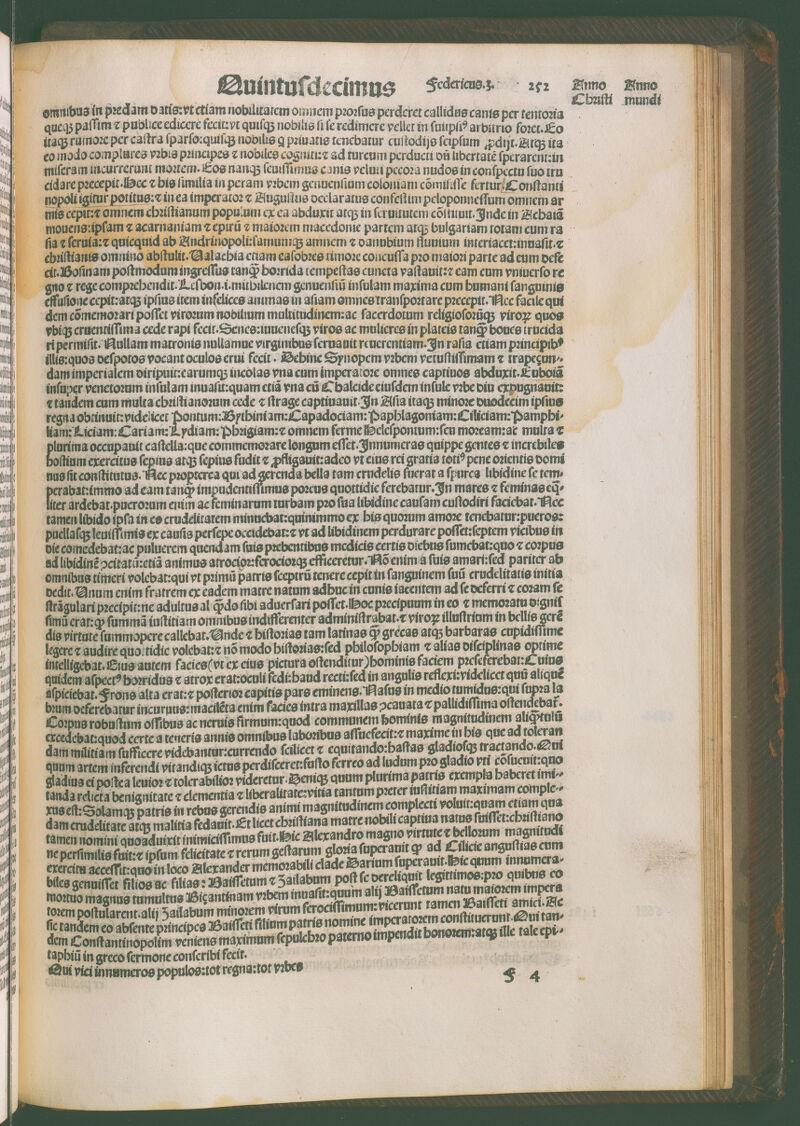 Quintusdecimus Federicus.3. 252 Anno Christi Anno mundi
omnibus in predam datis:vt etiam nobilitatem omnem prorsus perderet callidus canis per tentoria
queqꝫ passim ⁊ publice edicere fecit:vt quisqꝫ nobilis si se redimere vellet in suiipsiꝰ arbitrio foret. Eo
itaqꝫ rumore per castra sparso:quisqꝫ nobilis q̄ priuatis tenebatur custodijs seipsum ꝓdijt. Atqꝫ ita
eo modo complures vrbis principes ⁊ nobiles cogniti:⁊ ad turcum perducti dū libertatē sperarent:in
miseram incurrerunt mortem. Eos nanqꝫ seuissimus canis veluti pecora nudos in conspectu suo tru
cidare precepit. Hec ⁊ his similia in peram vrbem genuensium coloniam cōmisisse fertur. Constanti
nopoli igitur potitus:⁊ in ea imperator ⁊ Augustus declaratus confestim peloponnessum omnem ar
mis cepit:⁊ omnem christianum populum ex ea abduxit atqꝫ in seruitutem cōstituit. Inde in Achaiā
mouens:ipsam ⁊ acarnaniam ⁊ epirū ⁊ maiorem macedonie partem atqꝫ bulgariam totam cum ra
sia ⁊ seruia:⁊ quicquid ab Andrinopoli:samumqꝫ amnem ⁊ danubium fluuium interiacet:inuasit.⁊
christianis omnino abstulit. Valachia etiam easobres timore concussa pro maiori parte ad eum defe
cit. Bosinam postmodum ingressus tanqꝫ̄ horrida tempestas cuncta vastauit:⁊ eam cum vniuerso re
gno ⁊ rege comprehendit. Lesbon.i.mithilenem genuensiū insulam maxima cum humani sanguinis
effusione cepit:atqꝫ ipsius item infelices animas in asiam omnes transportare precepit. Nec facile qui
dem cōmemorari posset virorum nobilium multitudinem:ac sacerdotum religiosorūqꝫ viroꝝ quos
vbiqꝫ cruentissima cede rapi fecit. Senes:iuuenesqꝫ viros ac mulieres in plateis tanqꝫ̄ boues trucida
ri permisit. Nullam matronis nullamue virginibus seruauit reuerentiam. In rasia etiam principibꝰ
illis:quos despotos vocant oculos erui fecit. Dehinc Synopem vrbem vetustissimam ⁊ trapeçun-
dam imperialem diripuit:earumqꝫ incolas vna cum imperatore omnes captiuos abduxit. Euboiā
insuper venetorum insulam inuasit:quam etiā vna cū Chalcide eiusdem insule vrbe diu expugnauit:
⁊ tandem cum multa christianorum cede ⁊ strage captiuauit. In Asia itaqꝫ minore duodecim ipsius
regna obtinuit:videlicet Pontum:Bythiniam:Capadociam:Paphlagoniam:Ciliciam:Pamphi-
liam:Liciam:Cariam:Lydiam:Phrigiam:⁊ omnem ferme Helesponтum:seu moream:ac multa ⁊
plurima occupauit castella:que commemorare longum esset. Innumeras quippe gentes ⁊ increbiles
hostium exercitus sepius atqꝫ sepius fudit ⁊ ꝓfligauit:adeo vt eius rei gratia totiꝰ pene orientis domi
nus sit constitutus. Nec propterea qui ad gerenda bella tam crudelis fuerat a spurca libidine se tem-
perabat:immo ad eam tanqꝫ̄ impudentissimus porcus quottidie ferebatur. In mares ⁊ feminas eq̄-
liter ardebat.puerorum enim ac feminarum turbam pro sua libidine causam custodiri faciebat. Nec
tamen libido ipsa in eo crudelitatem minuebat:quinimmo ex his quorum amore tenebatur:pueros:
puellasqꝫ leuissimis ex causis persepe occidebat:⁊ vt ad libidinem perdurare posset:septem vicibus in
die comedebat:ac puluerem quendam suis prebentibus medicis certis diebus sumebat:quo ⁊ corpus
ad libidinē ↄcitatū:etiā animus atrocior:ferociorqꝫ efficeretur. Nō enim a suis amari:sed pariter ab
omnibus timeri volebat:qui vt primū patris sceptrū tenere cepit in sanguinem suū crudelitatis initia
dedit. Unum enim fratrem ex eadem matre natum adhuc in cunis iacentem ad se deferri ⁊ coram se
strāgulari precipit:ne adultus al q̄do sibi aduersari posset. Hoc precipuum in eo ⁊ memoratu dignis
simū erat:qꝙ summā iustitiam omnibus indifferenter administrabat.⁊ viroꝝ illustrium in bellis gerē
dis virtute summopere callebat. Unde ⁊ historias tam latinas qꝫ̄ grecas atqꝫ barbaras cupidissime
legere ⁊ audire quottidie volebat:⁊ nō modo historias:sed philosophiam ⁊ alias disciplinas optime
intelligebat. Eius autem facies(vt ex eius pictura ostenditur)hominis faciem preseferebat:Cuius
quidem aspectꝰ horridus ⁊ atrox erat:oculi fedi:haud recti:sed in angulis reflexi:videlicet quū aliquē
aspiciebat. Frons alta erat:⁊ posterior capitis pars eminens. Nasus in medio tumidus:qui supra la
brum deferebatur incuruus:macilēta enim facies intra maxillas ↄcauata ⁊ pallidissima ostendebat̄.
Corpus robustum ossibus ac neruis firmum:quod communem hominis magnitudinem aliq̄tulū
excedebat:quod certe a teneris annis omnibus laboribus assuefecit:⁊ maxime in his que ad toleran
dam militiam sufficere videbantur:currendo scilicet ⁊ equitando:hastas gladiosqꝫ tractando. Qui
quum artem inserendi vitandiqꝫ ictus perdisceret:fusto ferreo ad ludum pro gladio vti cōsueuit:quo
gladius ei postea leuior ⁊ tolerabilior videretur. Deniqꝫ quum plurima patris exempla haberet imi-
tanda relicta benignitate ⁊ clementia ⁊ liberalitate:vitia tantum preter iustitiam maximam comple-
xus est:Solamqꝫ patris in rebus gerendis animi magnitudinem complecti voluit:quam etiam qua
dam crudelitate atqꝫ malitia fedauit. Et licet christiana matre nobili captiua natus fuisset:christiano
tamen nomini quoaduixit inimicissimus fuit. Hic Alexandro magno virtute ⁊ bellorum magnitudi
ne persimilis fuit:⁊ ipsum felicitate ⁊ rerum gestarum gloria superauit qꝙ ad Cilicie angustias cum
exercitu accessit:quo in loco Alexander memorabili clade Darium superauit. Hic quum innumera-
biles genuisset filios ac filias: Baissetum ⁊ Zailabum post se dereliquit legittimos:pro quibus eo
mortuo magnus tumultus Biçantinam vrbem inuasit:quum alij Baissetum natu maiorem impera
torem postularent.alij Zailabum minorem virum ferocissimum:vicerunt tamen Baisseti amici. Ac
sic tandem eo absente principes Baisseti filium patris nomine imperatorem constituerunt. Qui tan-
dem Constantinopolim veniens maximum sepulchro paterno impendit honorem:atqꝫ ille tale epi-
taphiū in greco sermone conscribi fecit.
Qui vici innumeros populos:tot regna:tot vrbes
F 4